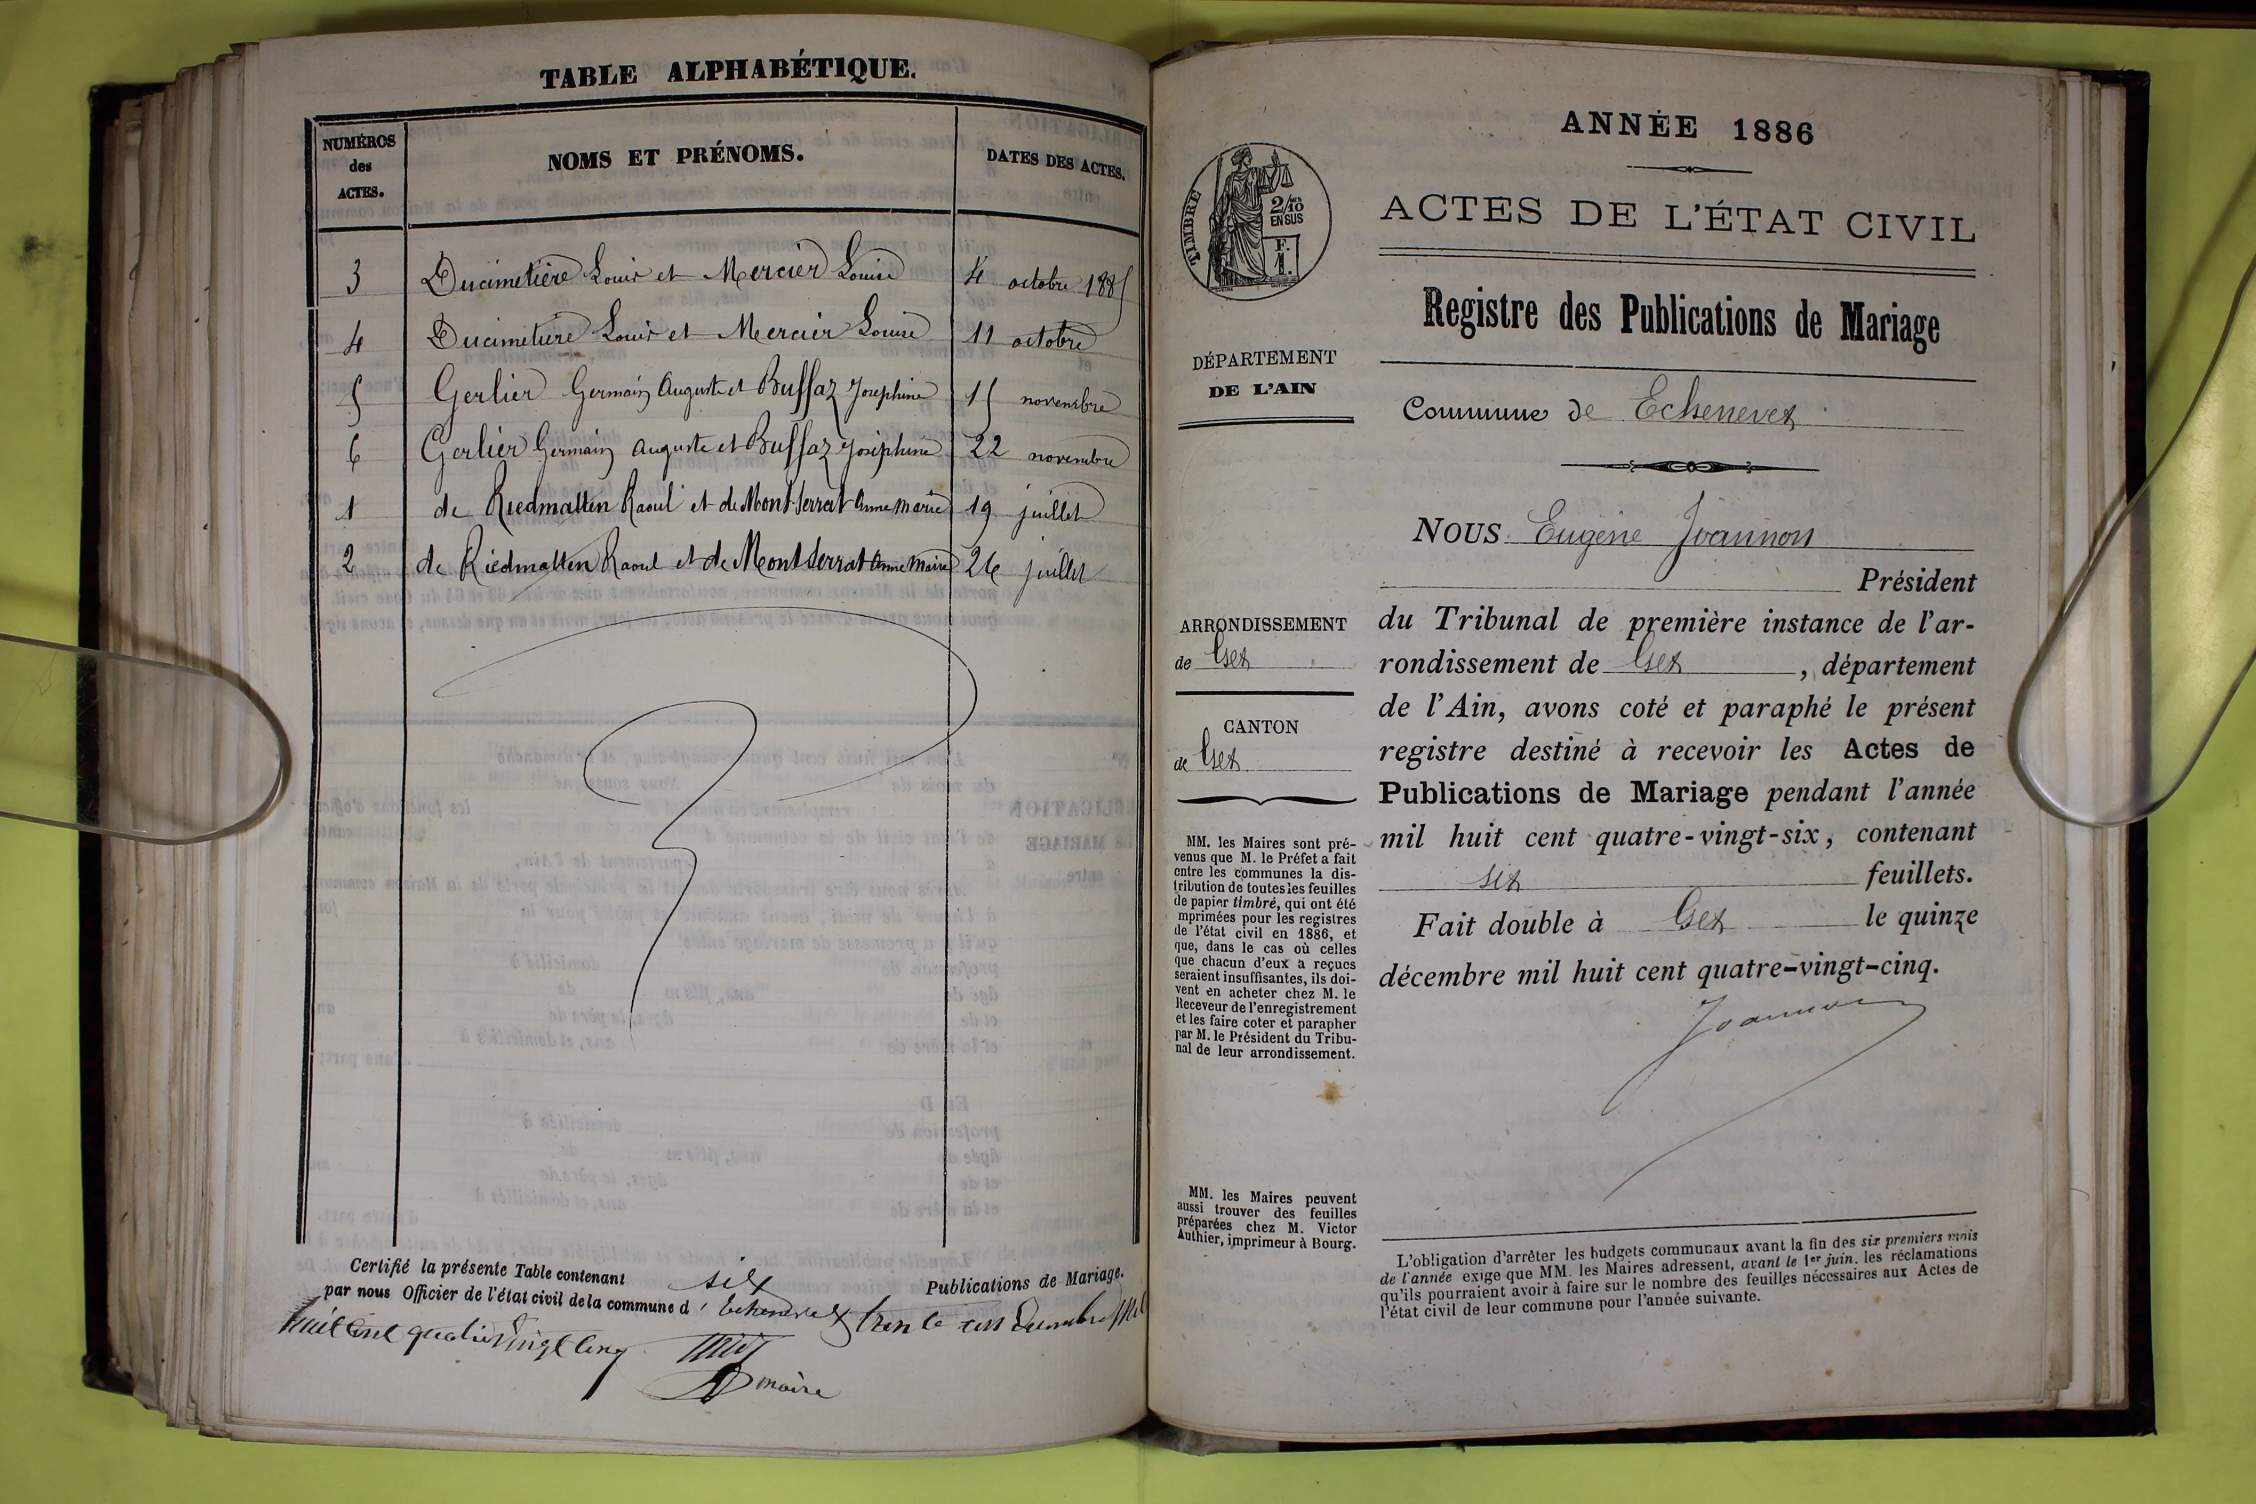 TABLE ALPHABÉTIQUE.
NUMÉROS des ACTES.
NOMS ET PRÉNOMS.
DATES DES ACTES.
3 Ducimetière Louis et Mercier Louise 4 octobre 1885
4 Ducimetière Louis et Mercier Louise 11 octobre
5 Gerlier Germain Auguste et Buffaz Joséphine 15 novembre
6 Gerlier Germain Auguste et Buffaz Joséphine 22 novembre
1 de Riedmatten Raoul et de Mont-Serrat Anne Marie 19 juillet
2 de Riedmatten Raoul et de Mont Serrat Anne Marie 26 juillet
Certifié la présente Table contenant six Publications de Mariage.
par nous Officier de l'état civil de la commune d' Echenevex trente un Décembre mil
huit cent quatre vingt cinq
maire
ANNÉE 1886
ACTES DE L'ÉTAT CIVIL
Registre des Publications de Mariage
Commune de Echenevex
TIMBRE
2/10 EN SUS
F. 1.
DÉPARTEMENT
DE L'AIN
ARRONDISSEMENT
de Gex
CANTON
de Gex
MM. les Maires sont pré-
venus que M. le Préfet a fait
entre les communes la dis-
tribution de toutes les feuilles
de papier timbré, qui ont été
imprimées pour les registres
de l'état civil en 1886, et
que, dans le cas où celles
que chacun d'eux a reçues
seraient insuffisantes, ils doi-
vent en acheter chez M. le
Receveur de l'enregistrement
et les faire coter et parapher
par M. le Président du Tribu-
nal de leur arrondissement.
MM. les Maires peuvent
aussi trouver des feuilles
préparées chez M. Victor
Authier, imprimeur à Bourg.
NOUS Eugène Joannon
Président
du Tribunal de première instance de l'ar-
rondissement de Gex, département
de l'Ain, avons coté et paraphé le présent
registre destiné à recevoir les Actes de
Publications de Mariage pendant l'année
mil huit cent quatre-vingt-six, contenant
six feuillets.
Fait double à Gex le quinze
décembre mil huit cent quatre-vingt-cinq.
Joannon
L'obligation d'arrêter les budgets communaux avant la fin des six premiers mois
de l'année exige que MM. les Maires adressent, avant le 1er juin, les réclamations
qu'ils pourraient avoir à faire sur le nombre des feuilles nécessaires aux Actes de
l'état civil de leur commune pour l'année suivante.